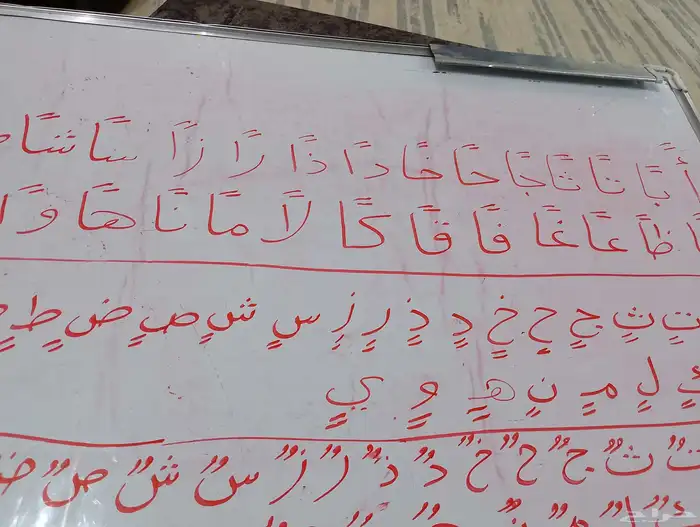 أً بًا تًا ثًا جًا حًا خًا دًا ذًا رًا زًا سًا شًا
ظًا عًا غًا فًا قًا كًا لًا مًا نًا هًا وًا
تٍ ثٍ جٍ حٍ خٍ دٍ ذٍ رٍ زٍ سٍ شٍ صٍ ضٍ طٍ
لٍ مٍ نٍ هٍ وٍ يٍ
تٌ ثٌ جٌ حٌ خٌ دٌ ذٌ رٌ زٌ سٌ شٌ صٌ ضٌ